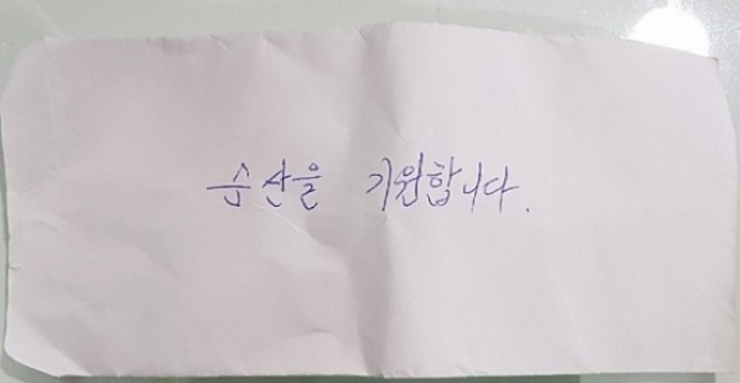 순산을 기원합니다.